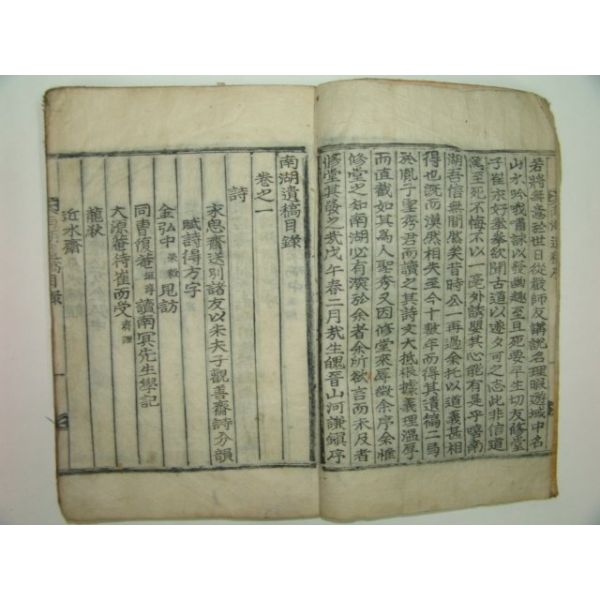 若將無意於世日從敬師友講說名理暇遊域中名
山水吟哦書詠以發幽趣至且死要平生切友修堂
子崔求好拳拳欲開古道以達夕可之志此非信道
篤至死不悔不以一毫外誘嬰其心能有是乎嘻南
湖吾信無間然矣昔時公一再過余托以道義甚相
得也既而漠然相失至今十數年而得其遺稿二局
於胤子聖秀君而讀之其詩文大抵根據義理溫厚
而直截如其為人聖秀又因修堂來辱徵余序余惟
修堂之知南湖必有深於余者余所欲言而未及者
修堂其發之哉戊午春二月哉生魄晉山河謙鎮序
南湖遺稿目錄
卷之一
詩
永思齋送別諸友以朱夫子觀善齋詩分韻
賦詩得方字
金弘中 見訪
同曹復菴 讀南冥先生學記
大源菴待崔而受
龍湫
近水齋